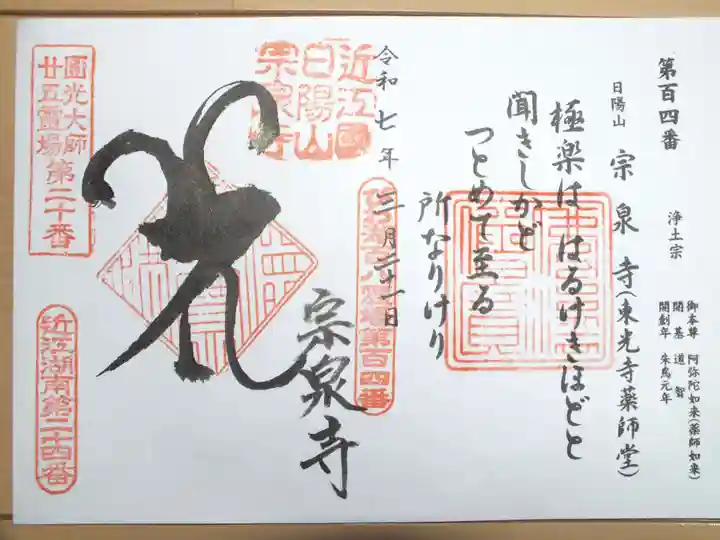 第百四番
浄土宗
日陽山 宗泉寺(東光寺薬師堂)
御本尊 阿弥陀如来(薬師如来)
開基 道智
開創年 朱鳥元年
極楽は はるけきほどと
聞きしかど
つとめて至る
所なりけり
令和七年
三月二十一日
近江國
日陽山
宗泉寺
第百四番
宗泉寺
圓光大師
廿五霊場第二十番
近江湖南第二十四番